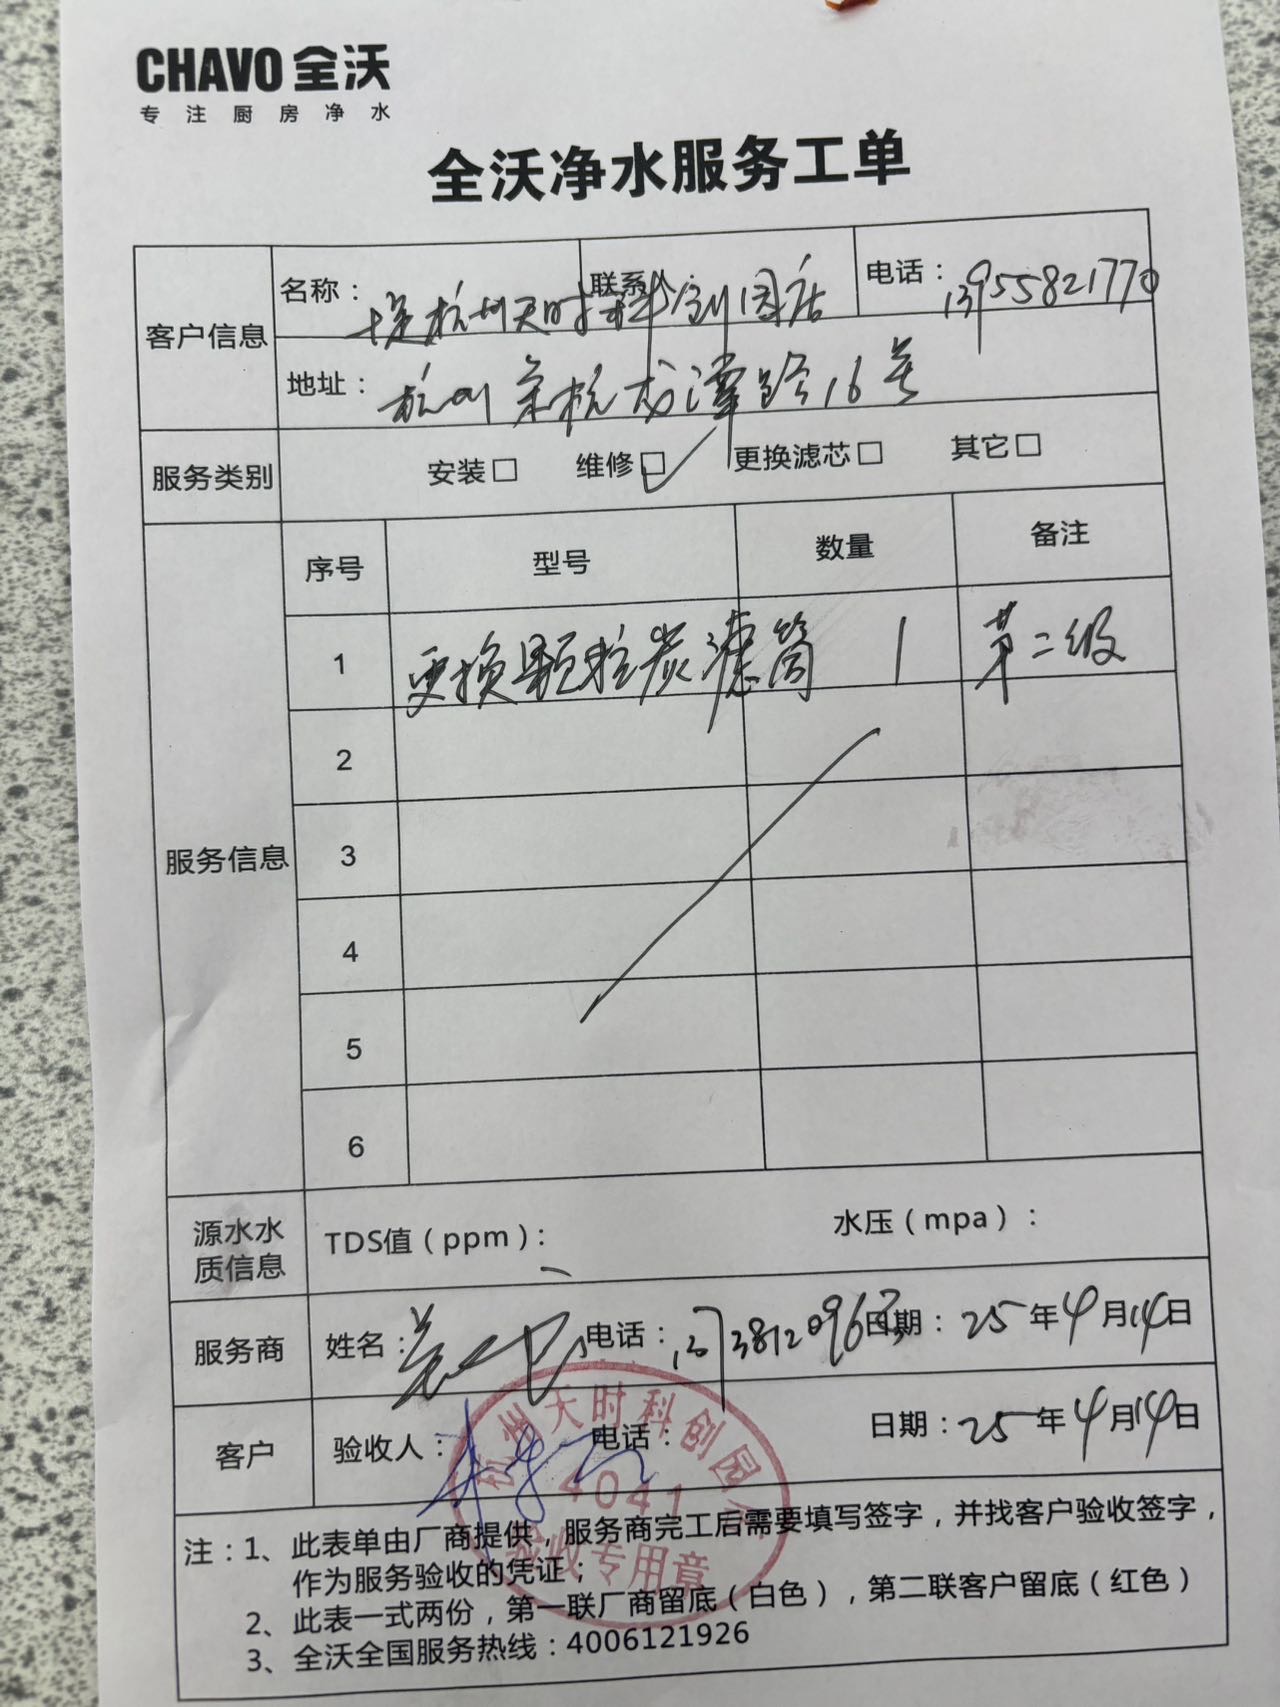 CHAVO 全沃
专注厨房净水
全沃净水服务工单
客户信息 名称： 杭州天时科创园店 联系人： 电话：13955821770
地址：杭州余杭龙潭路16号
服务类别 安装□ 维修☑ 更换滤芯□ 其它□
服务信息 序号 型号 数量 备注
1 更换颗粒炭滤筒 1 第二级
2
3
4
5
6
源水水质信息 TDS值（ppm）： 水压（mpa）：
服务商 姓名： 电话： 日期：25年4月14日
客户 验收人： 电话： 日期：25年4月14日
杭州天时科创园店
4041
验收专用章
注：1、此表单由厂商提供，服务商完工后需要填写签字，并找客户验收签字，
作为服务验收的凭证；
2、此表一式两份，第一联厂商留底（白色），第二联客户留底（红色）
3、全沃全国服务热线：4006121926